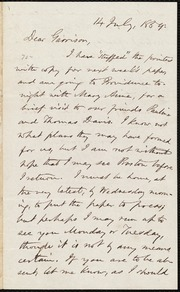 14 July, 1859.
Dear Garrison,
I have "stuffed" the printer
with copy for next week's paper,
and am going to Providence to-
night with Mary Anne, for a
brief visit to our friends Paulina
and Thomas Davis. I know not
what plans they may have formed
for us, but I am not without
hope that I may see Boston before
I return. I must be home, at
the very latest, by Wednesday morn-
ing, to put the paper to press,
but perhaps I may run up to
see you Monday or Tuesday,
though it is not by any means
certain. If you are to be ab-
sent, let me know, as I should